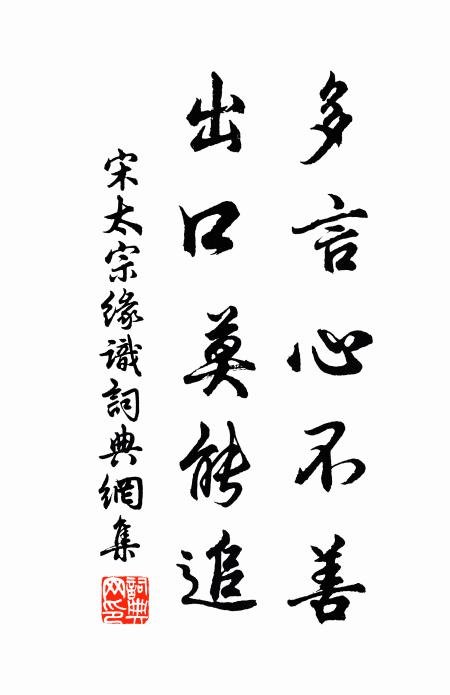 多言心不善
出口莫能追
宋太宗緣識詞典網集
詞典网印